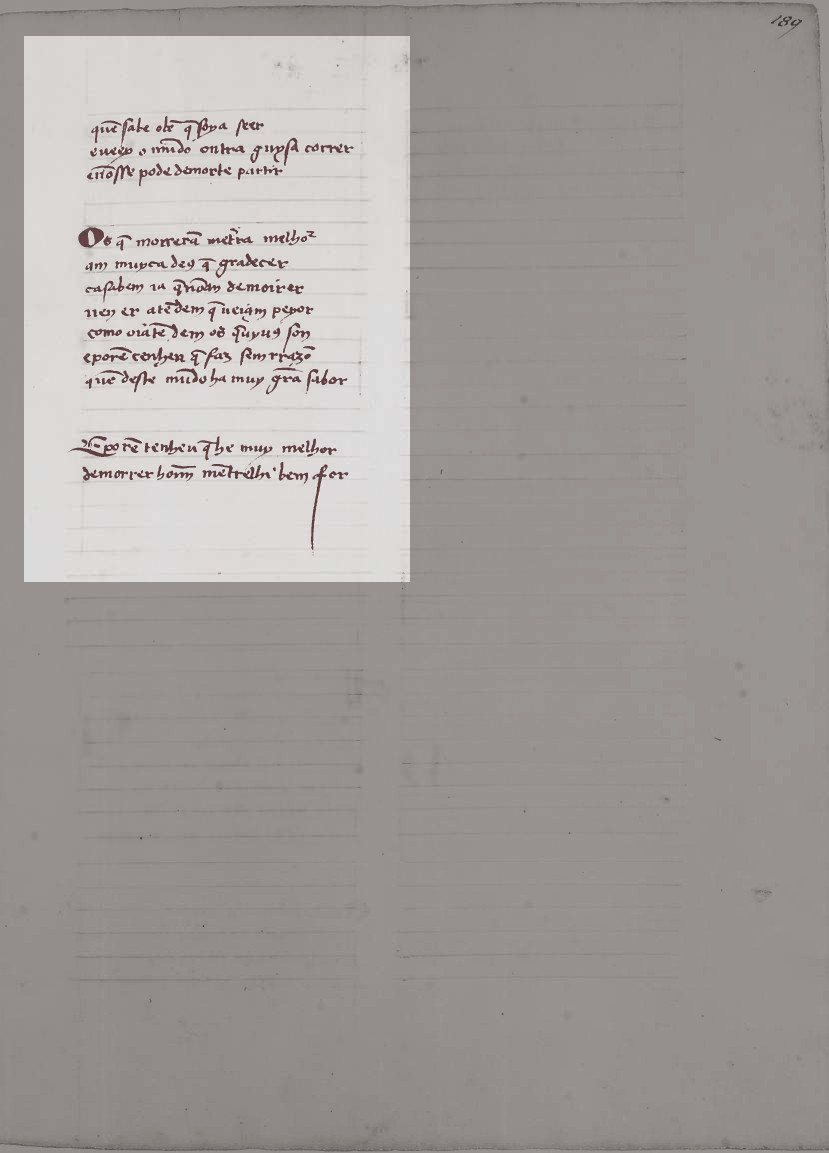 189
quẽ sabe o bẽ q̃ soya seer
e ueey o mũdo outra guysa correr
e nõsse pode demorte partir
Os q̃ morrerã mẽtra melhor
am muyca deꝯ q̃ gradecer
ca sabem ia q̃ nõ am demoirer
nen er atẽdem q̃ ueiam peyor
como oiatẽ dem os q̃ uyuꝯ son
e porẽ tenheu q̃ faz sem rrazõ
quẽ deste mũdo ha muy grã sabor
E porẽ tenheu q̃ he muy melhor
demorrer homẽ mẽtrelhi bem for